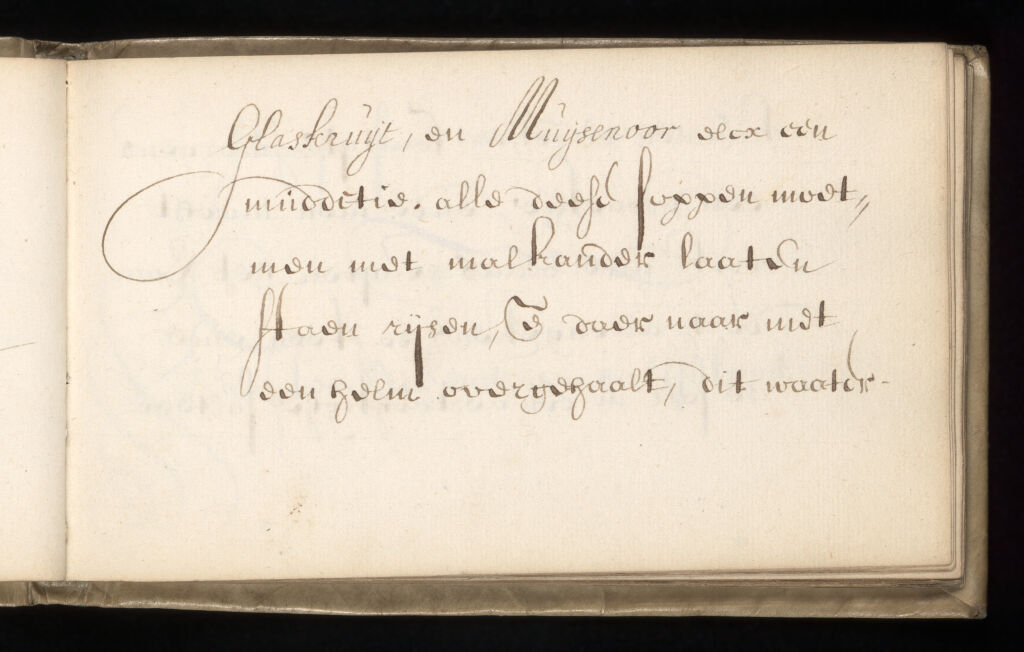 Glaskruijt, en Muijsenoor elcx een
muddetie. alle deese soppen moet„
men met malkander laaten
staen rijsen, & daer naar met
een helm overgehaalt, dit waater-